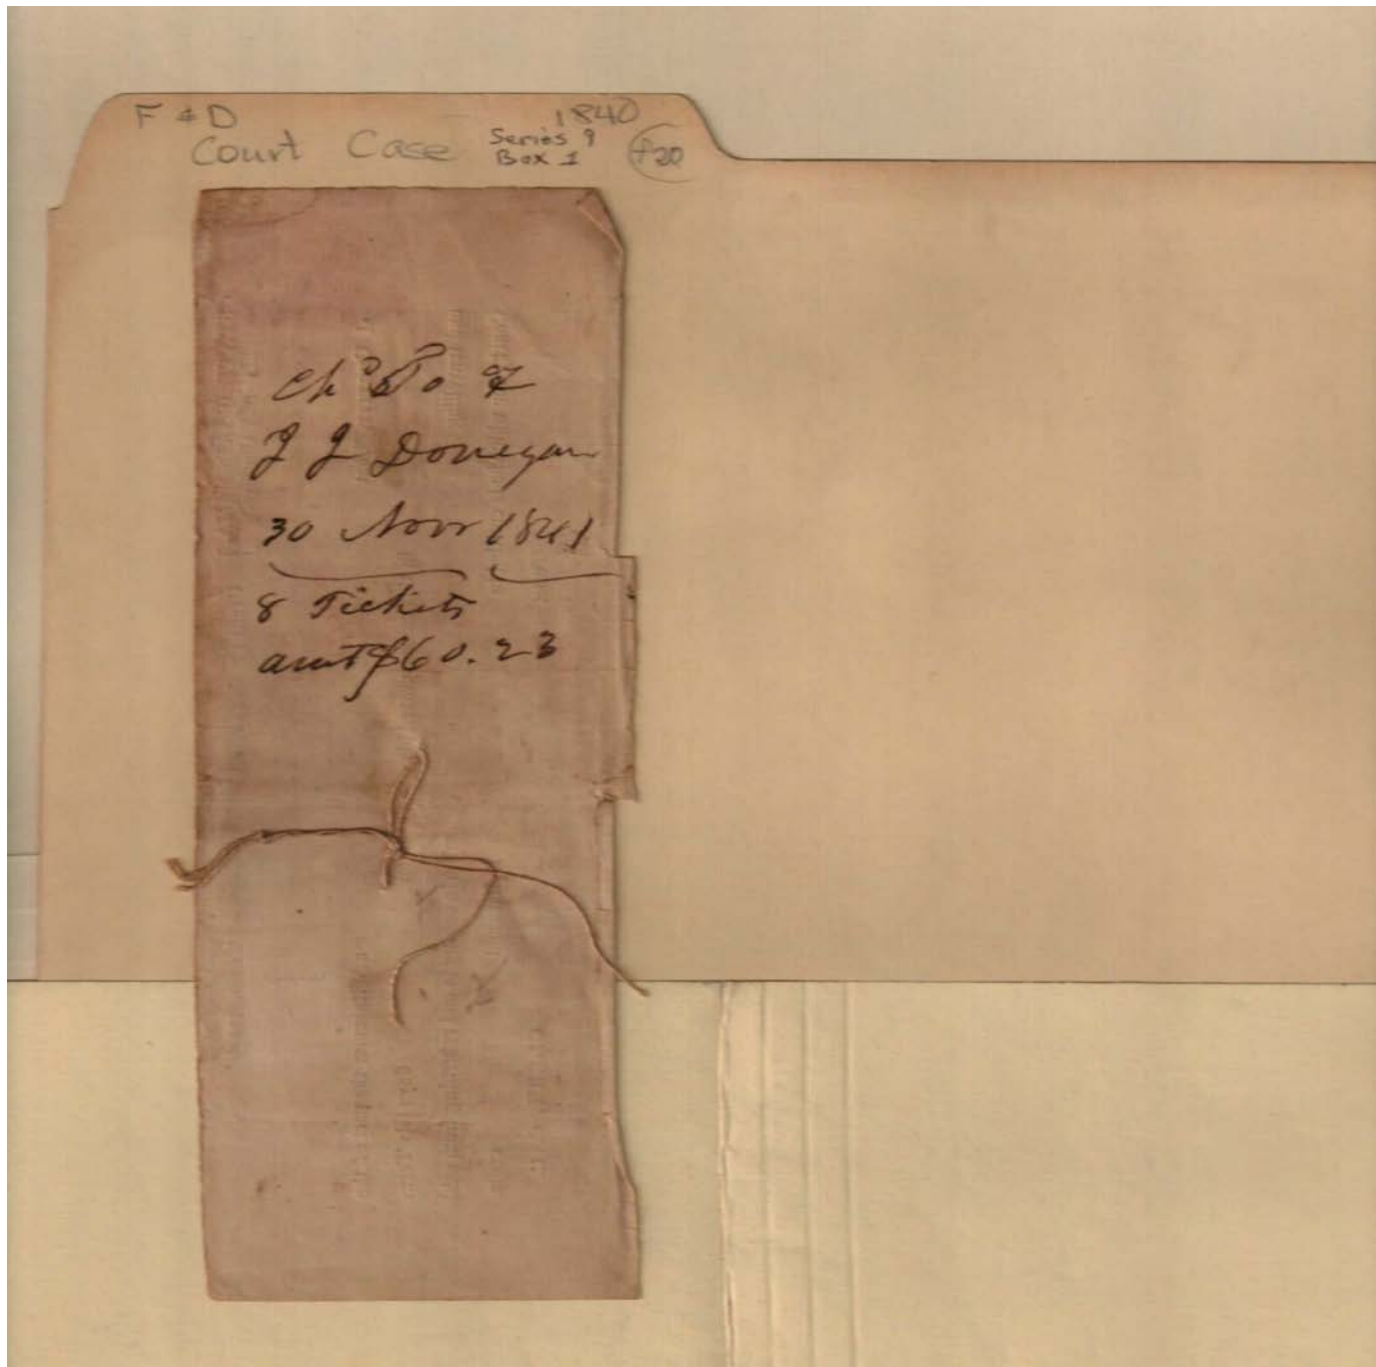 F & D
1840
Court Case
Series 9
Box 1
f20
J J Donegan
30 Novr 1841
8 Tickets
amt $60.23